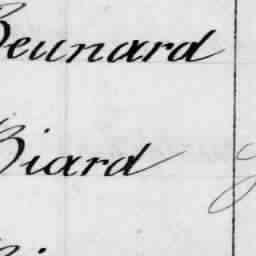 Beunard
Biard